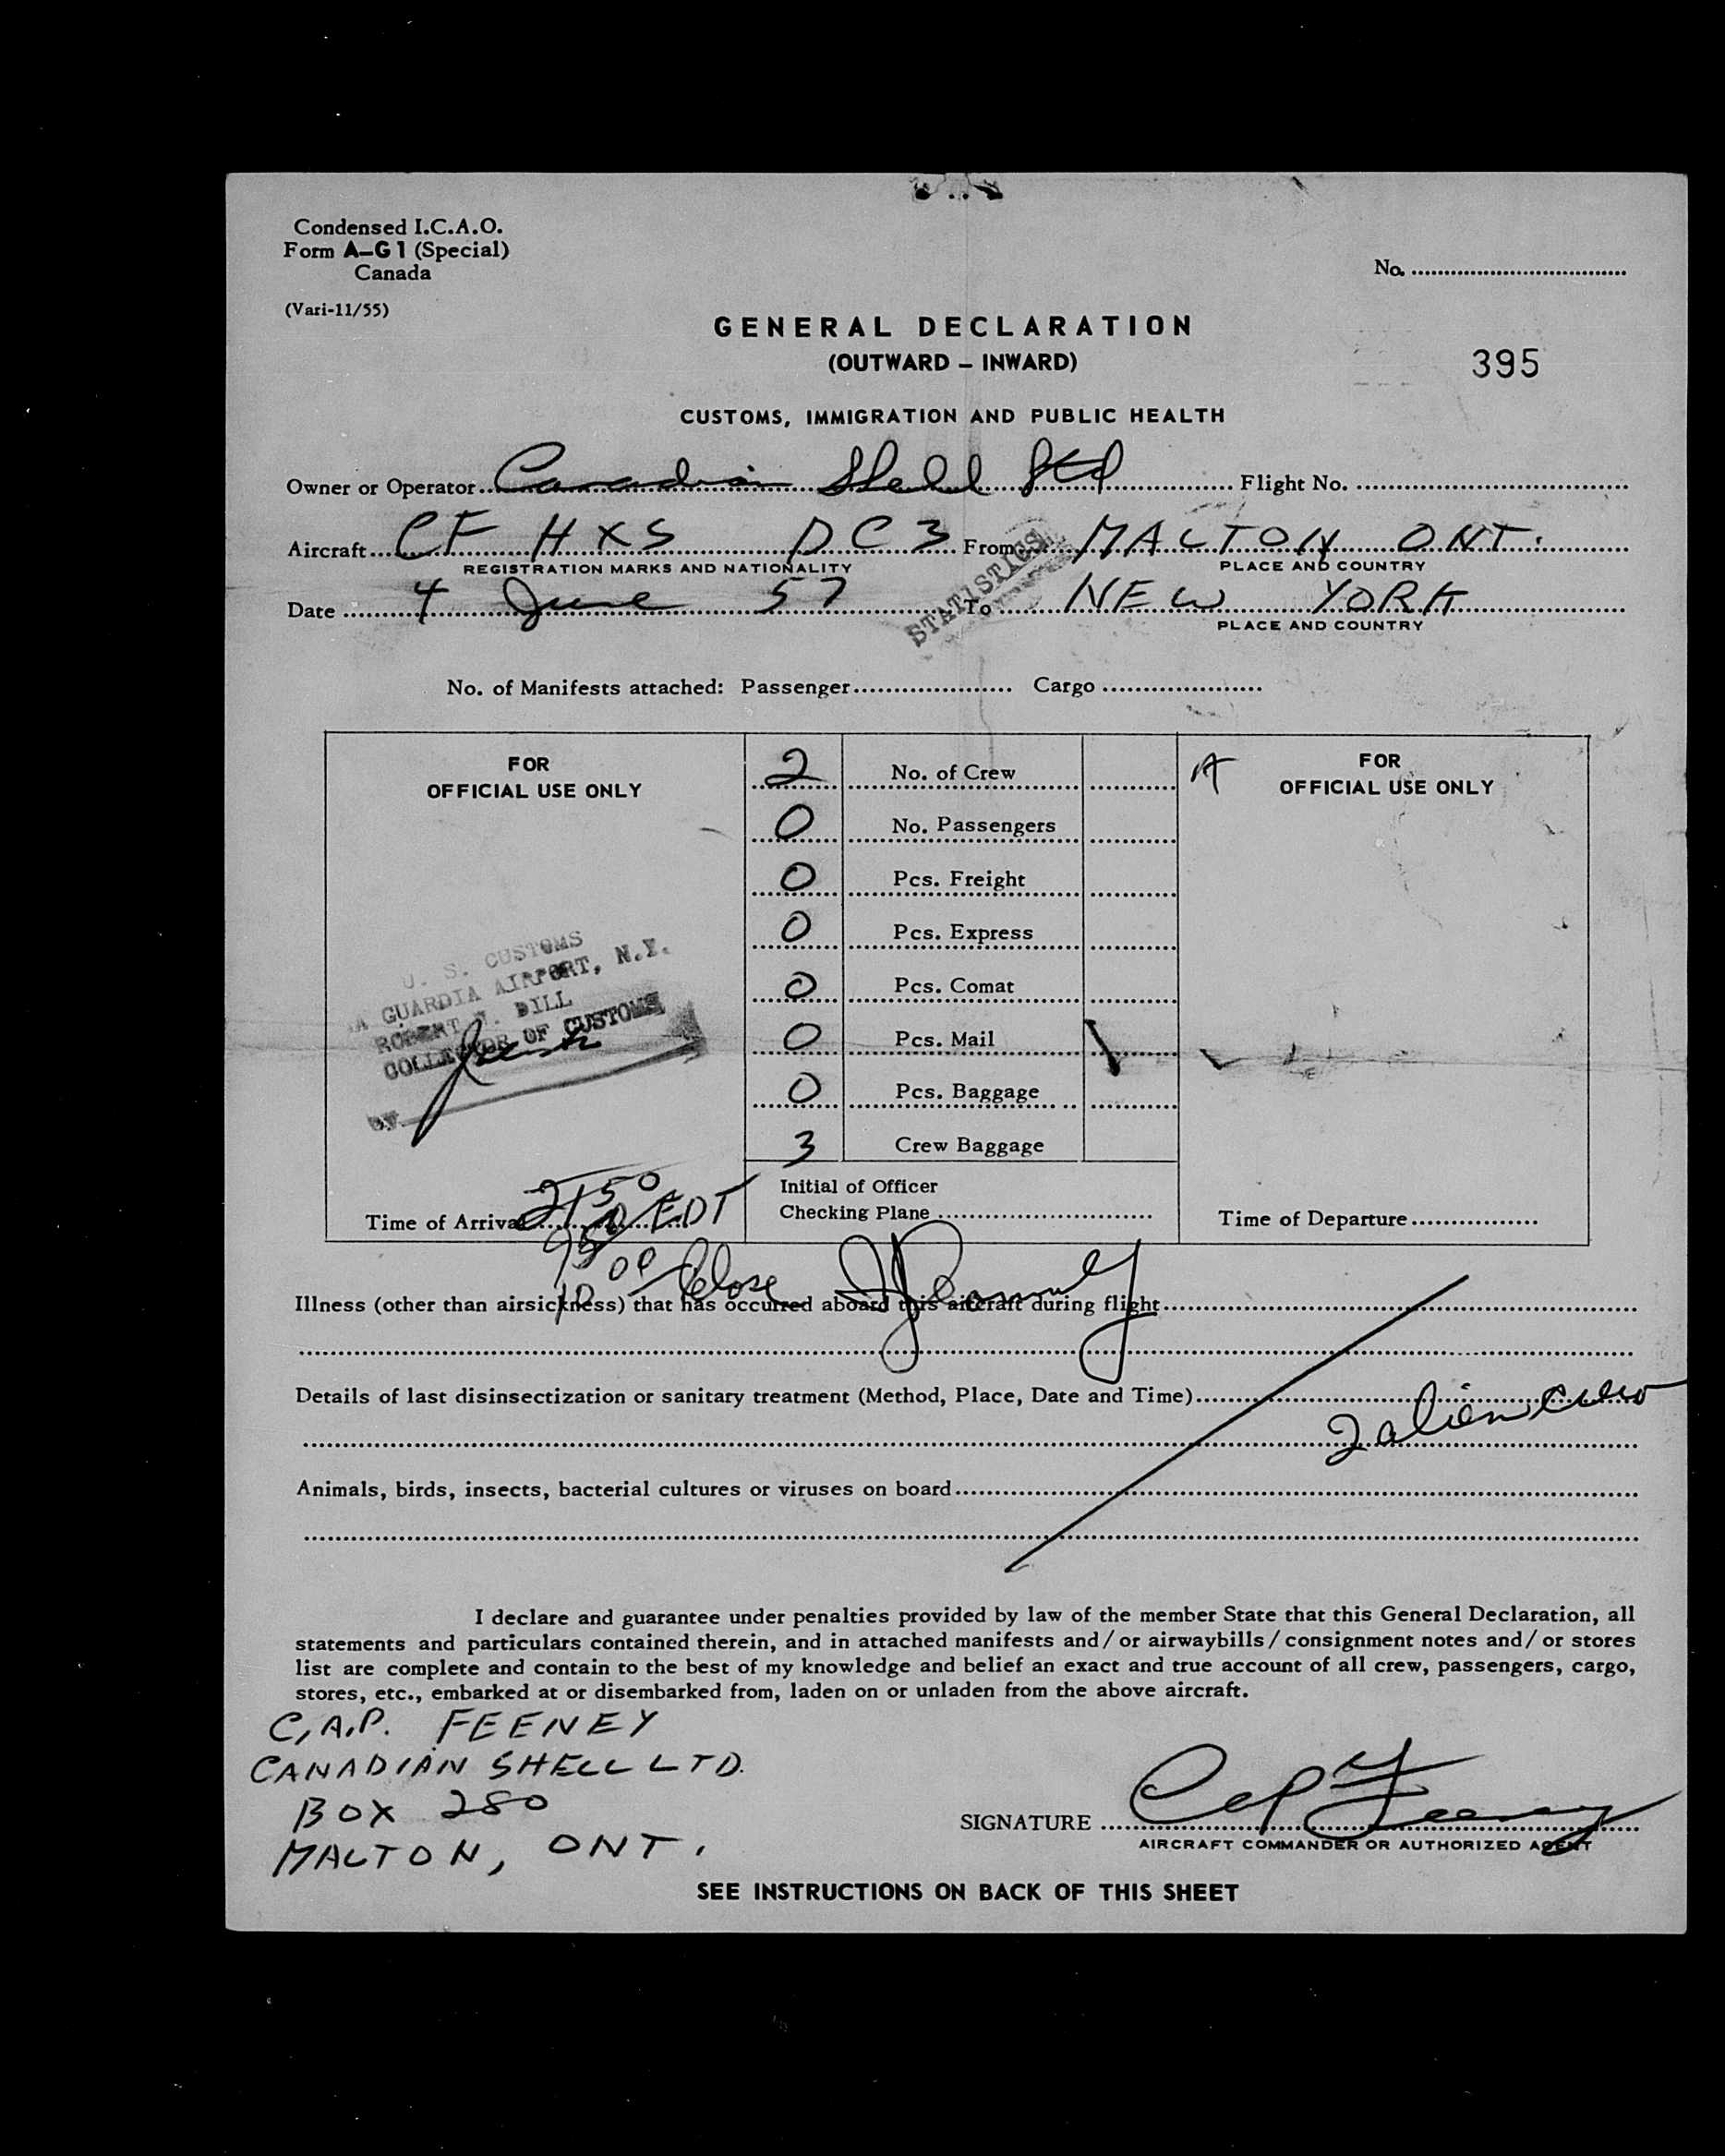 Condensed I.C.A.O.
Form A–G1 (Special)
Canada
No. ..................
(Vari-11/55)
GENERAL DECLARATION
(OUTWARD – INWARD)
395
CUSTOMS, IMMIGRATION AND PUBLIC HEALTH
Owner or Operator Canadian Shell Ltd Flight No. ..................
Aircraft CF HXS DC3 From MALTON ONT.
REGISTRATION MARKS AND NATIONALITY PLACE AND COUNTRY
STATISTICS
Date 4 June 57 To NEW YORK
PLACE AND COUNTRY
No. of Manifests attached: Passenger.................. Cargo ..................
FOR
OFFICIAL USE ONLY
2 No. of Crew
0 No. Passengers
0 Pcs. Freight
0 Pcs. Express
0 Pcs. Comat
0 Pcs. Mail
0 Pcs. Baggage
3 Crew Baggage
A FOR
OFFICIAL USE ONLY
U. S. CUSTOMS
LA GUARDIA AIRPORT, N.Y.
ROBERT W. DILL
COLLECTOR OF CUSTOMS
BY
Time of Arrival 2150 EDT
Initial of Officer
Checking Plane ..................
Time of Departure..................
950
10 00 Close
Illness (other than airsickness) that has occurred aboard this aircraft during flight..................
Details of last disinsectization or sanitary treatment (Method, Place, Date and Time)..................
2 alien crew
Animals, birds, insects, bacterial cultures or viruses on board..................
I declare and guarantee under penalties provided by law of the member State that this General Declaration, all
statements and particulars contained therein, and in attached manifests and/or airwaybills/consignment notes and/or stores
list are complete and contain to the best of my knowledge and belief an exact and true account of all crew, passengers, cargo,
stores, etc., embarked at or disembarked from, laden on or unladen from the above aircraft.
C.A.P. FEENEY
CANADIAN SHELL LTD.
BOX 280
MALTON, ONT.
SIGNATURE CAP Feeney
AIRCRAFT COMMANDER OR AUTHORIZED AGENT
SEE INSTRUCTIONS ON BACK OF THIS SHEET